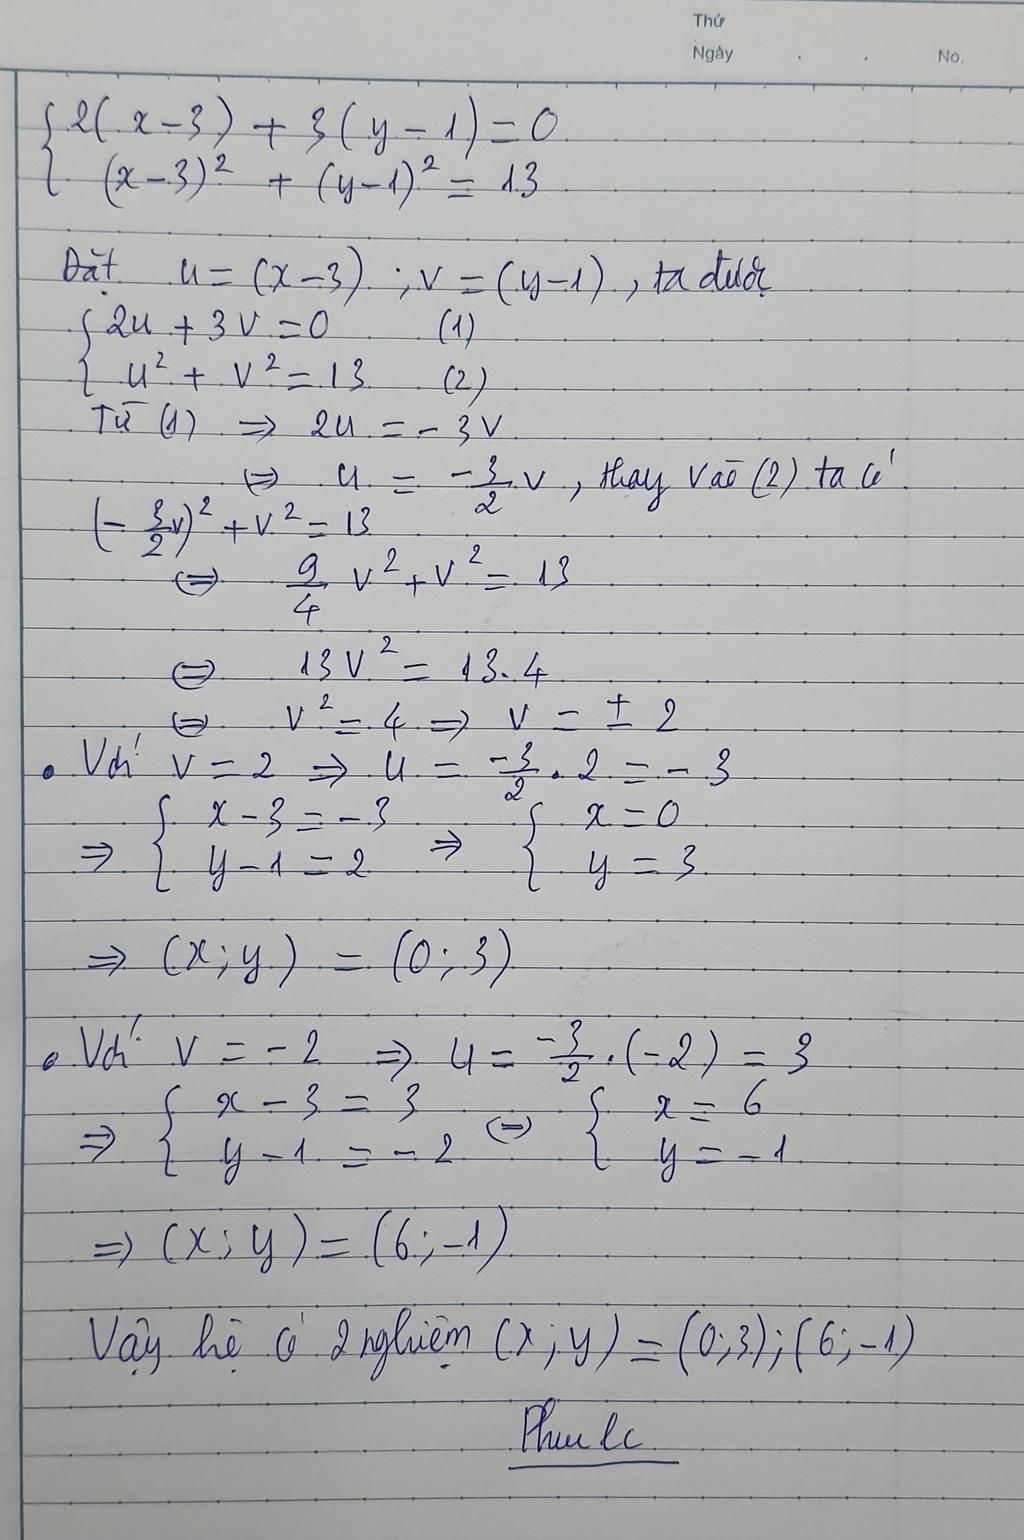 Thứ
Ngày . . No.
{ 2(x-3) + 3(y-1) = 0
(x-3)² + (y-1)² = 13
Đặt u = (x-3) ; v = (y-1), ta được
{ 2u + 3v = 0 (1)
u² + v² = 13 (2)
Từ (1) ⇒ 2u = -3v
⇔ u = -3/2 v, thay vào (2) ta có
(-3/2 v)² + v² = 13
⇔ 9/4 v² + v² = 13
⇔ 13v² = 13.4
⇔ v² = 4 ⇒ v = ± 2
• Với v = 2 ⇒ u = -3/2 . 2 = -3
⇒ { x-3 = -3 ⇒ { x = 0
y-1 = 2 y = 3
⇒ (x; y) = (0; 3)
• Với v = -2 ⇒ u = -3/2 . (-2) = 3
⇒ { x-3 = 3 ⇔ { x = 6
y-1 = -2 y = -1
⇒ (x; y) = (6; -1)
Vậy hệ có 2 nghiệm (x; y) = (0; 3); (6; -1)